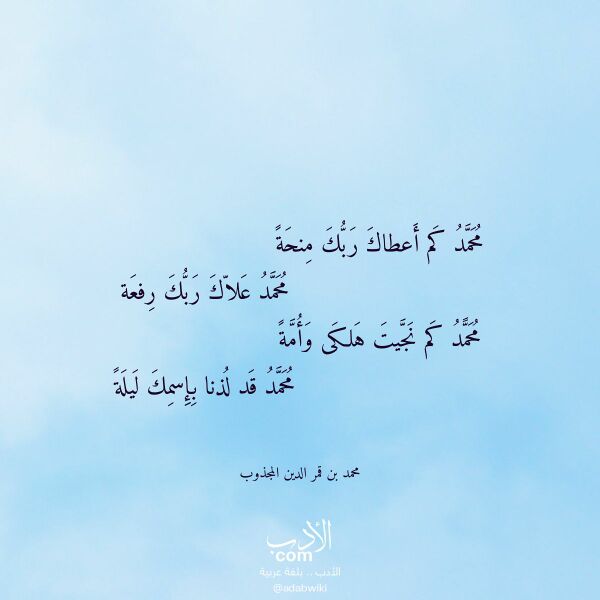 مُحَمَّدُ كَم أَعطاكَ رَبُّكَ مِنحَةً
مُحَمَّدُ عَلاّكَ رَبُّكَ رِفعَة
مُحَمَّدُ كَم نَجَّيتَ هَلكَى وَأُمَّةً
مُحَمَّدُ قَد لُذنا بِإِسمِكَ لَيلَةً
محمد بن قمر الدين المجذوب
الأدب
com
الأدب .. بلغة عربية
@adabwiki